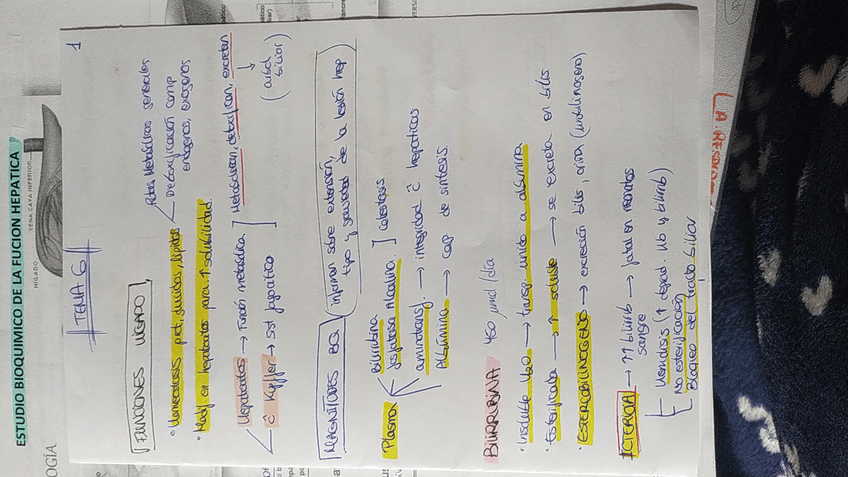 ESTUDIO BIOQUIMICO DE LA FUCION HEPATICA
VENA CAVA INFERIOR
HIGADO
OLOGÍA
1
TEMA 6
FUNCIONES HIGADO
· Homeostasis prot, glucidos, lipidos
Rutas Metabólicas generales
Detoxificación comp
endogenos, exogenos
· Modif en hepatocitos para ↑ solubilidad
Hepatocitos → Función metabólica ] Metabolizan, detoxifican, excretan
C Kupffer → sist fagocítico
↓
(arbol
biliar)
MAGNITUDES BQ (informan sobre extensión,
tipo y gravedad de la lesión hep)
Plasma
Bilirrubina
fosfatasa alcalina ] colestasis
aminotransf. → integridad c hepaticas
Albúmina → cap de síntesis
BILIRRUBINA 450 µmol/día
· Insoluble H2O → transp unido a albúmina
· Esterificada → ↑ soluble → se excreta en bilis
· ESTERCOBILINOGENO → excreción bilis, orina (urobilinogeno)
ICTERICIA → ↑↑ bilirrub → fatal en neonatos
sangre
Hemolisis (↑ degrad. Hb y bilirrub)
No esterificación
Bloqueo del tracto biliar